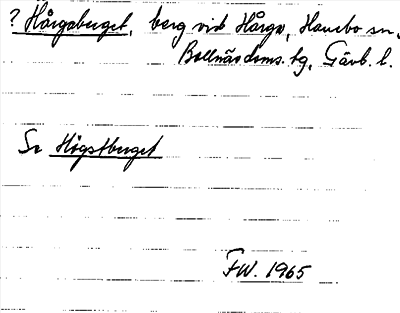 ? Hårgaberget, berg vid Hårga, Hanebo sn,
Bollnäs doms. tg, Gävl. l.
Se Högstberget
FW. 1965